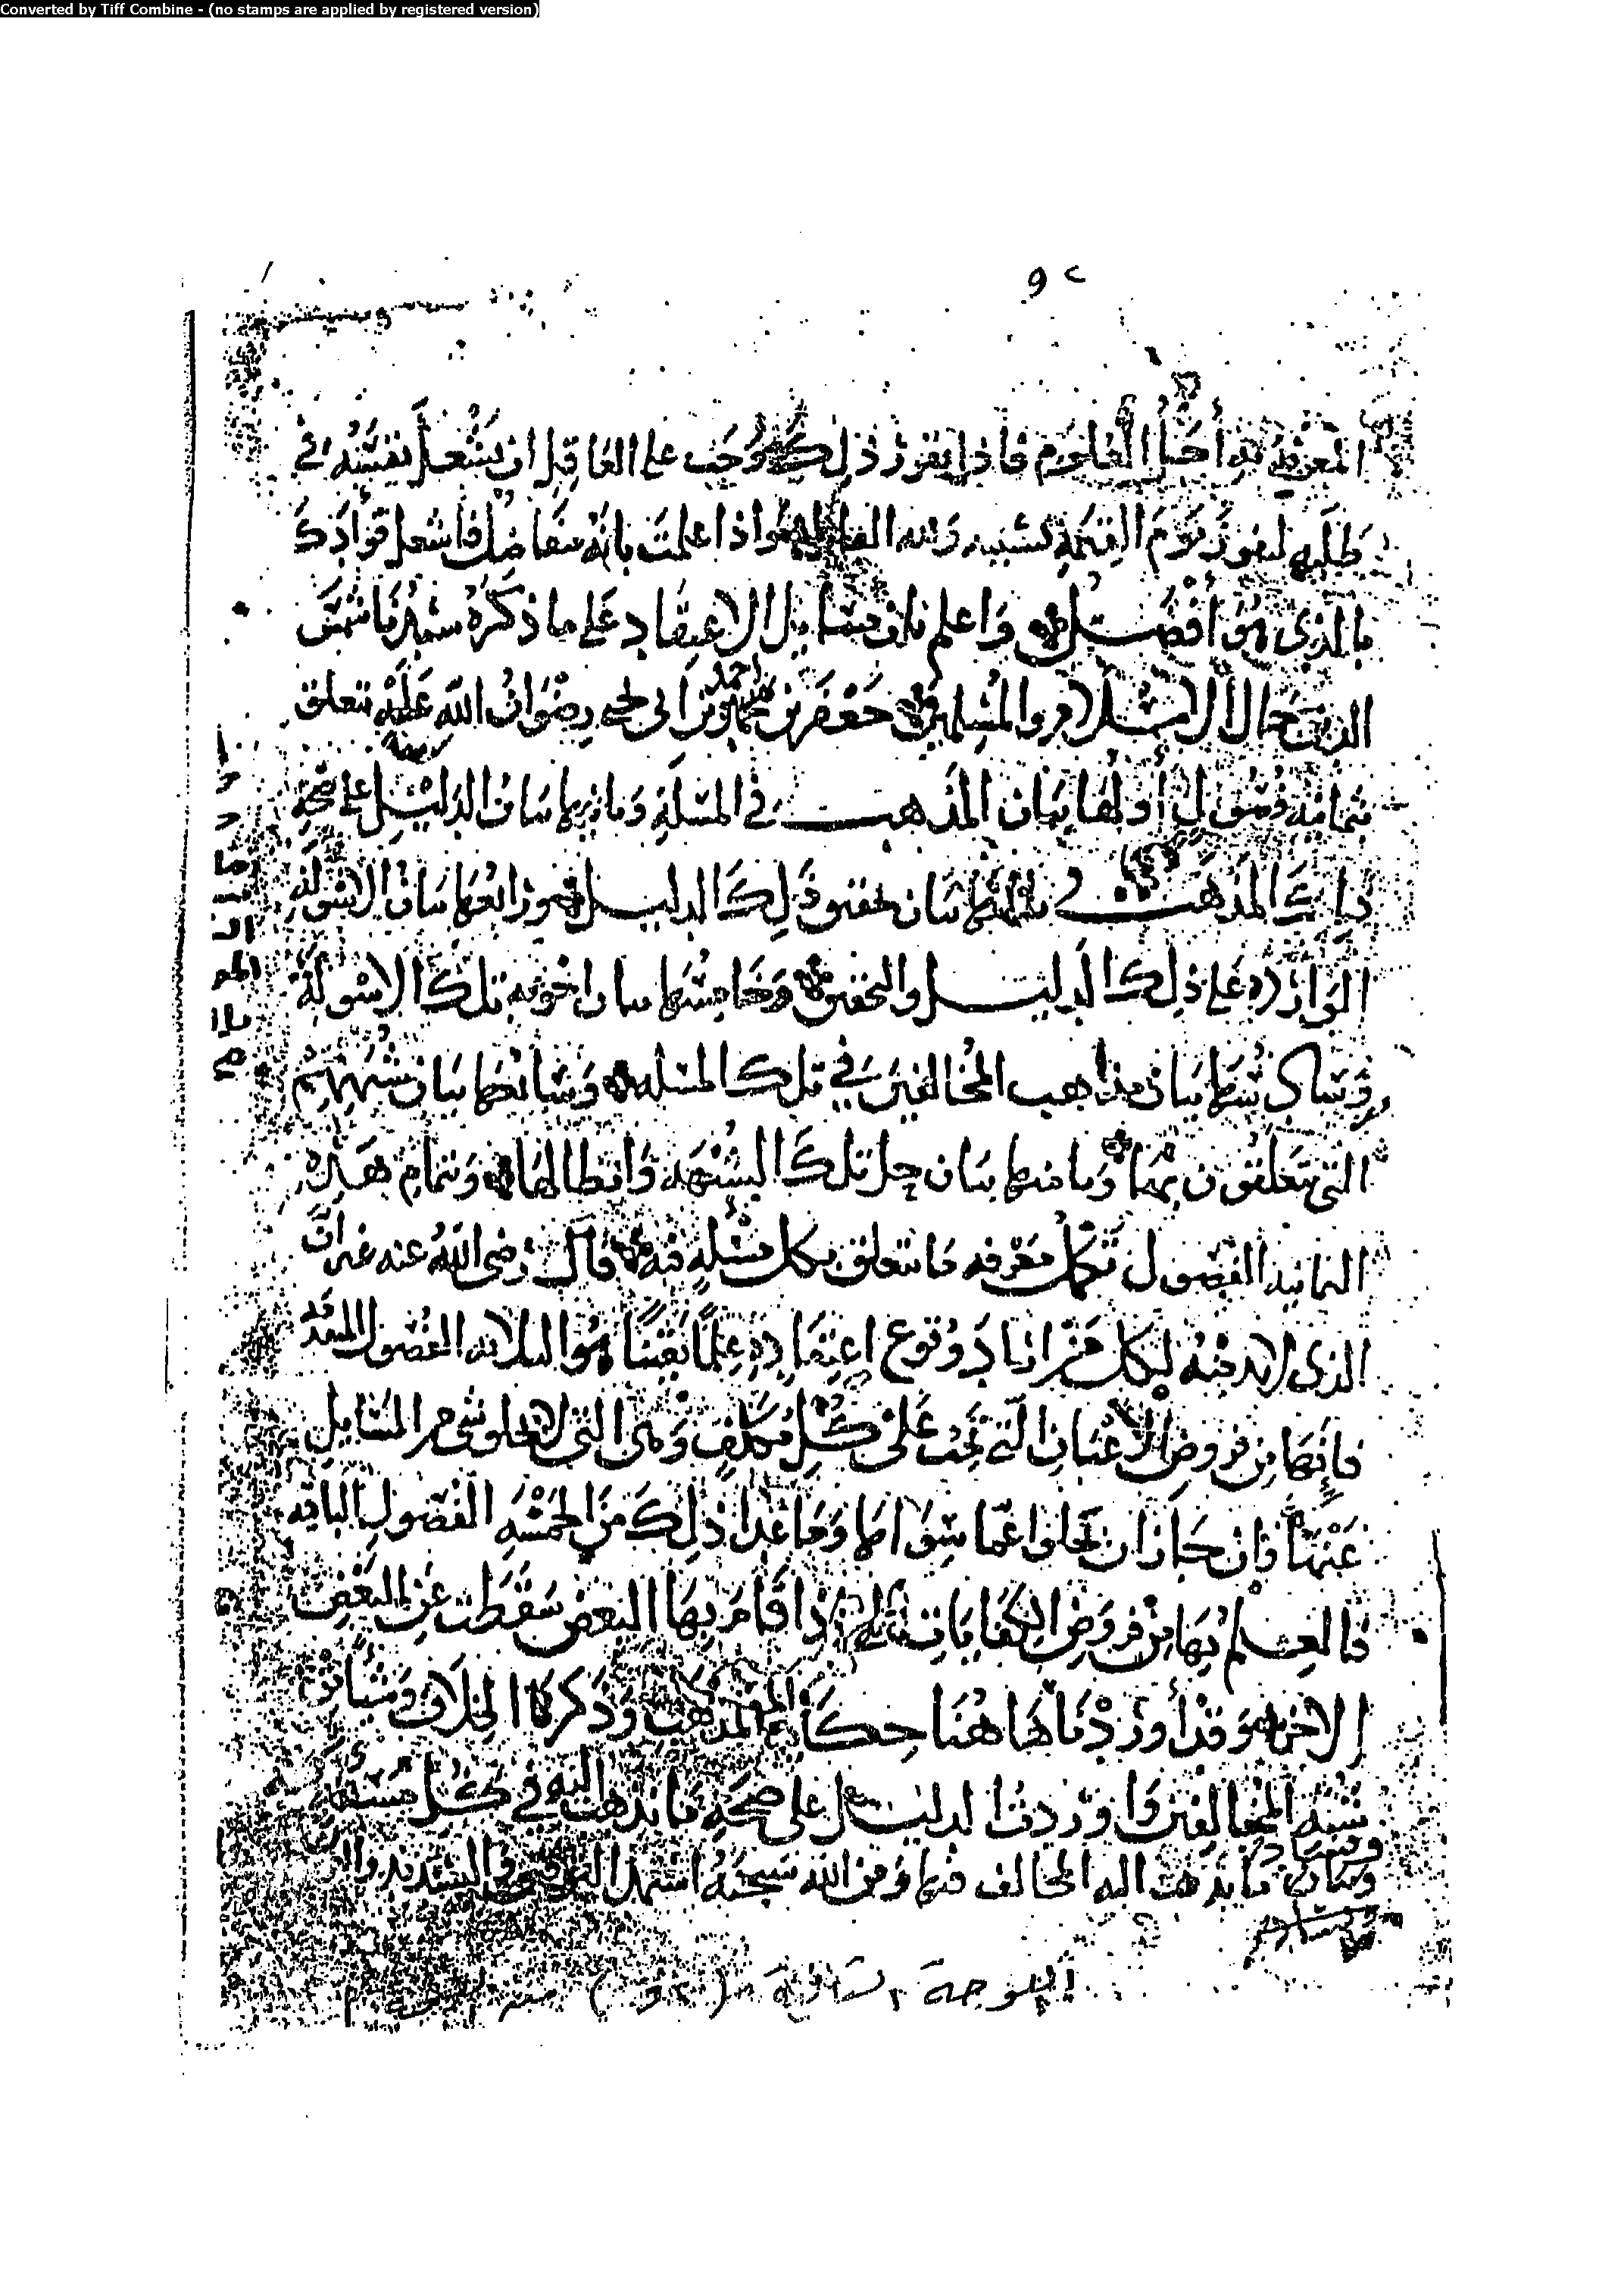 Converted by Tiff Combine - (no stamps are applied by registered version)
المعرفة أجل العلوم فإذا تقرر ذلك وجب على العاقل ان يشغل نفسه في
طلبه ليفوز يوم القيمة واذا علمت بانه متفاضل فاشغل فؤادك
بالذي هو أفضل واعلم بان مسايل الاعتقاد على ما ذكره شمس
الدين جمال الاسلام والمسلمين جعفر بن احمد بن ابي يحيى رضوان الله عليه تتعلق
بثمانية فصول أولها بيان المذهب في المسلة وثانيها بيان الدليل على صحة
ذلك المذهب وثالثها بيان تحقيق ذلك الدليل ورابعها بيان الاسولة
الواردة على ذلك الدليل والتحقيق وخامسها بيان اجوبة تلك الاسولة
وسادسها بيان مذاهب المخالفين في تلك المسلة وسابعها بيان شبههم
التي يتعلقون بها وثامنها بيان حل تلك الشبهة وابطالها وبتمام هذه
الثمانية الفصول تكمل معرفة ما يتعلق بكل مسئلة قال رضي الله عنه غير ان
الذي لابد منه لكل من اراد وقوع اعتقاده علما يقينا هو الثلاثة الفصول المتقدمة
فإنها من فروض الأعيان التي تجب على كل مكلف وهي التي لا يخلو شي من المسايل
عنها وان جاز ان يخلو عما سواها وما عدا ذلك من الخمسة الفصول الباقية
فالعلم بها من فروض الكفايات إذا قام بها البعض سقطت عن البعض
الاخر وقد أوردنا هاهنا حكاية المذهب وذكر الخلاف
شبه المخالفين واوردنا الدليل على صحة ما نذهب اليه في كل مسئلة
وفساد ما يذهب اليه المخالف فيها ومن الله سبحنه استمد التوفيق والتسديد
اللوحة الثانية (٢ و)